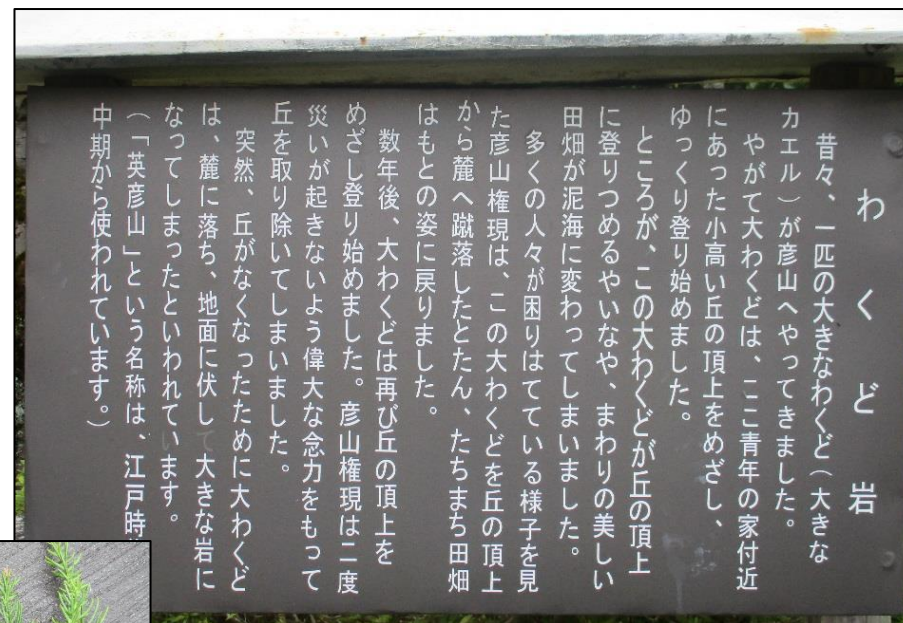 わくど岩
昔々、一匹の大きなわくど（大きな
カエル）が彦山へやってきました。
やがて大わくどは、ここ青年の家付近
にあった小高い丘の頂上をめざし、
ゆっくり登り始めました。
ところが、この大わくどが丘の頂上
に登りつめるやいなや、まわりの美しい
田畑が泥海に変わってしまいました。
多くの人々が困りはてている様子を見
た彦山権現は、この大わくどを丘の頂上
から麓へ蹴落したとたん、たちまち田畑
はもとの姿に戻りました。
数年後、大わくどは再び丘の頂上を
めざし登り始めました。彦山権現は二度
災いが起きないよう偉大な念力をもって
丘を取り除いてしまいました。
突然、丘がなくなったために大わくど
は、麓に落ち、地面に伏して大きな岩に
なってしまったといわれています。
（「英彦山」という名称は、江戸時
中期から使われています。）